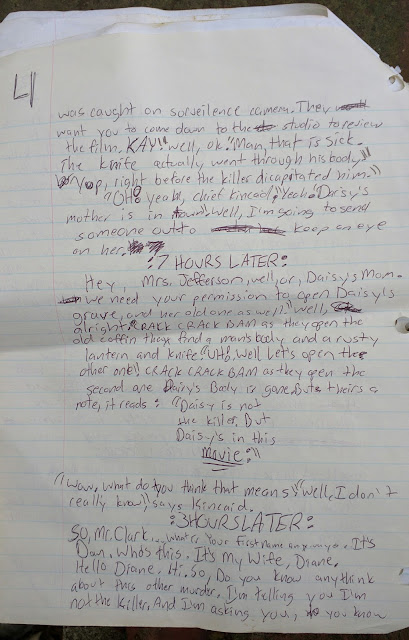 4
was caught on sorveilence camera. They
want you to come down to the studio to review
the film, KAY! "well, ok. "Man, that is sick.
The knife actually went through his body"
"Yop, right before the killer dicapitated him."
"OH! yeah, chief kincaid." Yeah." Daisy's
mother is in town. Well, I'm going to send
someone out to keep an eye
on her.
:7 HOURS LATER:
Hey, Mrs. Jefferson, well, or, Daisy's Mom.
we need your permission to open Daisy's
grave, and her old one as well." Well,
alright. CRACK CRACK BAM as they open the
old coffin they find a man's body and a rusty
lantern and knife. "Uh, Well Let's open the
other one!" CRACK CRACK BAM as they open the
second one Dairy's Body is gone. But theirs a
note, it reads: "Daisy is not
the killer. But
Daisy's in this
movie:"
"wow, what do you think that means," "Well, I don't
really know," says Kincaid.
:3 HOURS LATER:
So, Mr. Clark... what is Your First name anyways. It's
Dan. Who's this. It's My Wife, Diane.
Hello Diane. Hi. So, Do you know anythink
about this other murder. I'm telling you I'm
not the killer. And I'm asking you, do you know